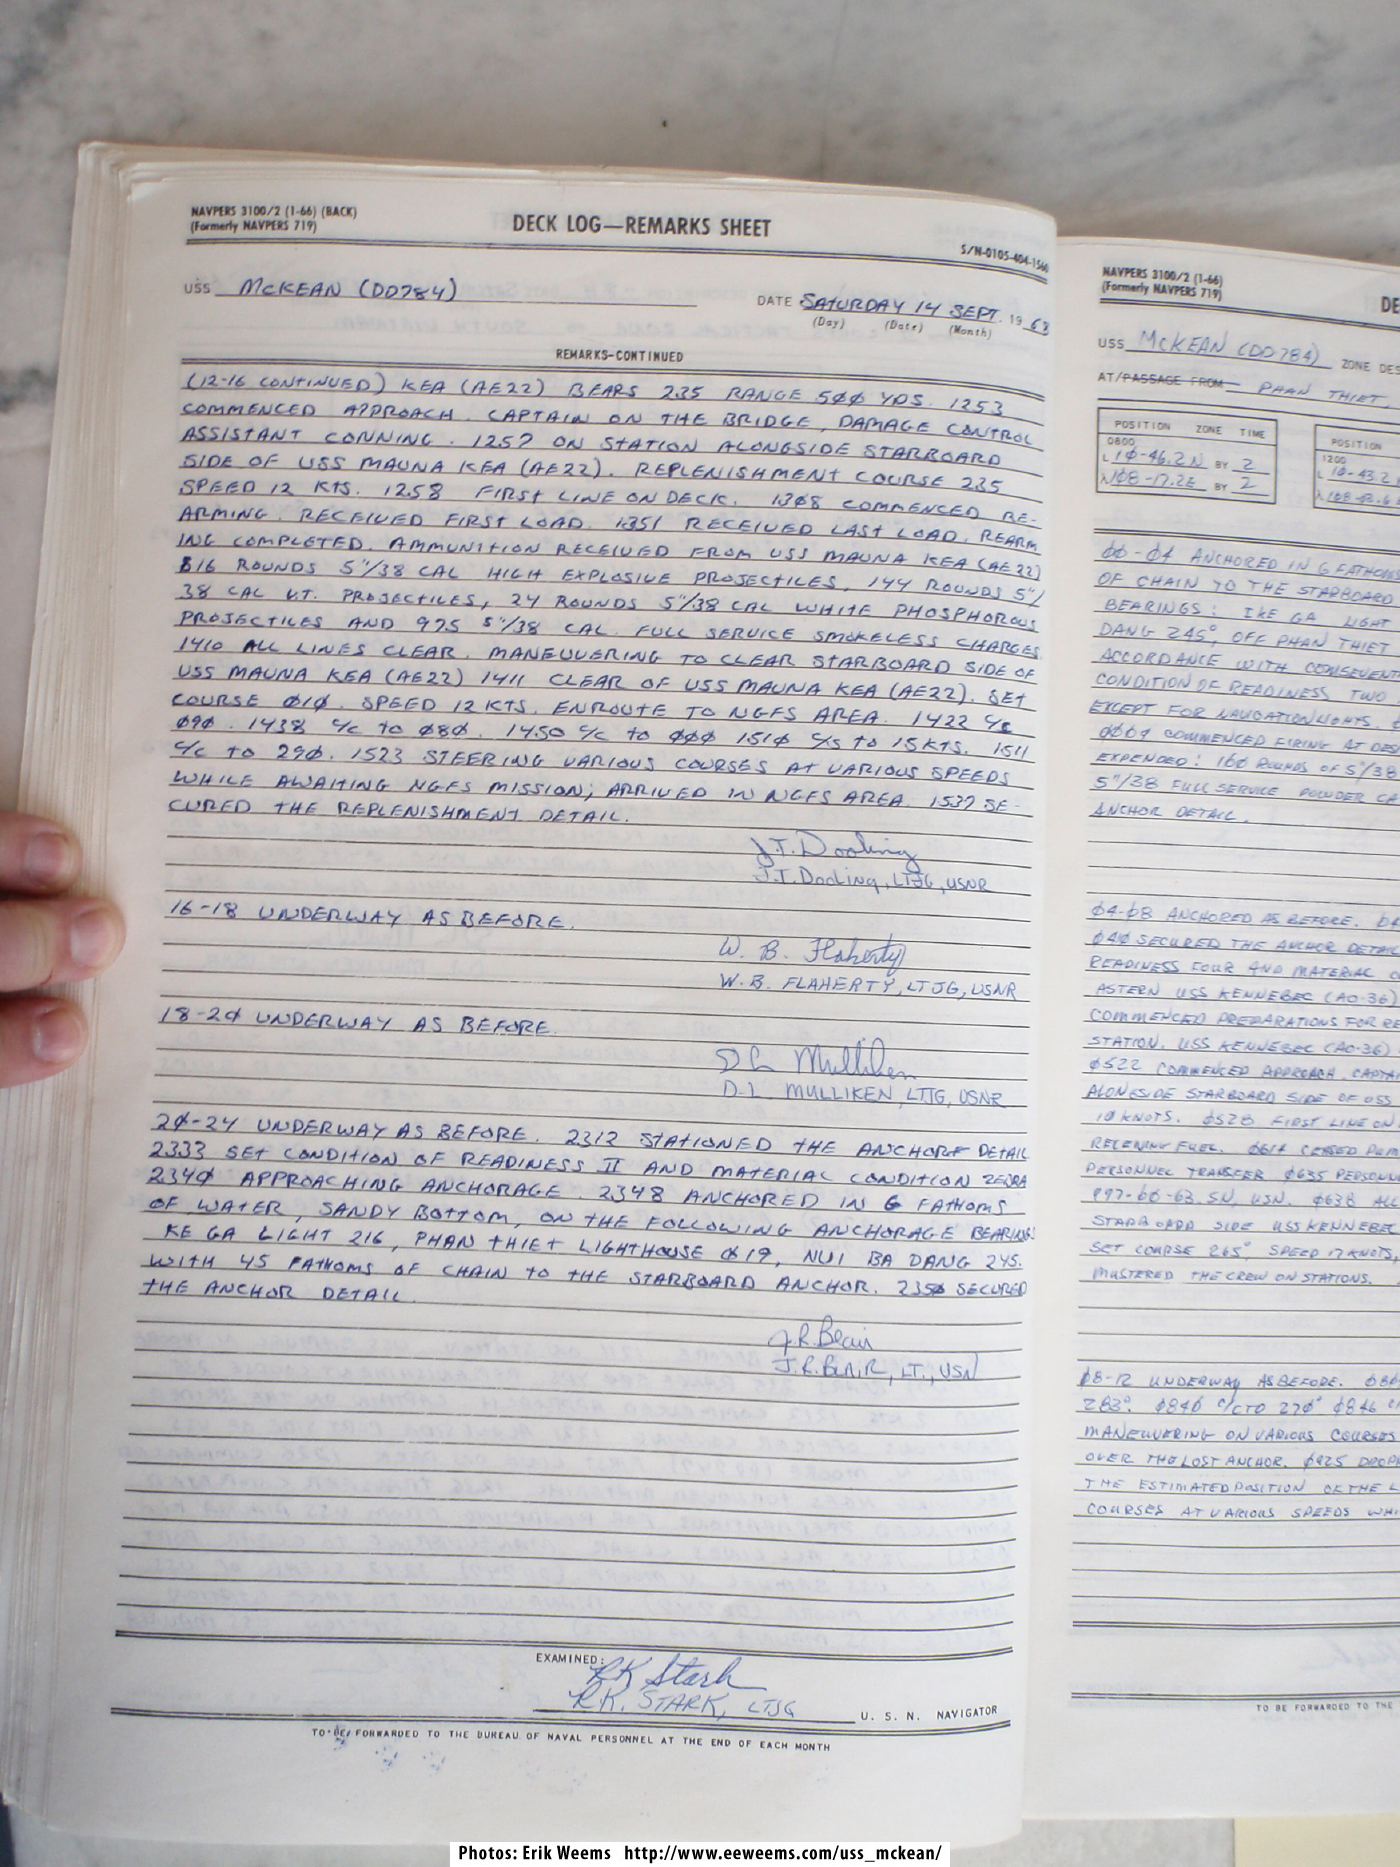 NAVPERS 3100/2 (1-66) (BACK)
(Formerly NAVPERS 719)
DECK LOG—REMARKS SHEET
S/N-0105-404-1560
USS McKEAN (DD784)
DATE SATURDAY 14 SEPT. 1968
(Day) (Date) (Month)
REMARKS-CONTINUED
(12-16 CONTINUED) KEA (AE22) BEARS 235 RANGE 5ØØ YDS. 1253
COMMENCED APPROACH. CAPTAIN ON THE BRIDGE, DAMAGE CONTROL
ASSISTANT CONNING. 1257 ON STATION ALONGSIDE STARBOARD
SIDE OF USS MAUNA KEA (AE22). REPLENISHMENT COURSE 235
SPEED 12 KTS. 1258 FIRST LINE ON DECK. 13Ø8 COMMENCED RE-
ARMING. RECEIVED FIRST LOAD. 1351 RECEIVED LAST LOAD. REARM
ING COMPLETED. AMMUNITION RECEIVED FROM USS MAUNA KEA (AE22)
816 ROUNDS 5"/38 CAL HIGH EXPLOSIVE PROJECTILES, 144 ROUNDS 5"/
38 CAL V.T. PROJECTILES, 24 ROUNDS 5"/38 CAL WHITE PHOSPHOROUS
PROJECTILES AND 975 5"/38 CAL. FULL SERVICE SMOKELESS CHARGES
141Ø ALL LINES CLEAR. MANEUVERING TO CLEAR STARBOARD SIDE OF
USS MAUNA KEA (AE22) 1411 CLEAR OF USS MAUNA KEA (AE22). SET
COURSE Ø1Ø. SPEED 12 KTS. ENROUTE TO NGFS AREA. 1422 C/C
Ø9Ø. 1438 C/C TO Ø8Ø. 1450 C/C TO ØØØ 151Ø C/S TO 15 KTS. 1511
C/C TO 29Ø. 1523 STEERING VARIOUS COURSES AT VARIOUS SPEEDS
WHILE AWAITING NGFS MISSION; ARRIVED IN NGFS AREA. 1537 SE-
CURED THE REPLENISHMENT DETAIL.
J.T. Dooling
J.T. Dooling, LTJG, USNR
16-18 UNDERWAY AS BEFORE.
W. B. Flaherty
W. B. FLAHERTY, LTJG, USNR
18-2Ø UNDERWAY AS BEFORE.
D L Mulliken
D. L. MULLIKEN, LTJG, USNR
2Ø-24 UNDERWAY AS BEFORE. 2312 STATIONED THE ANCHOR DETAIL
2333 SET CONDITION OF READINESS II AND MATERIAL CONDITION ZEBRA
234Ø APPROACHING ANCHORAGE. 2348 ANCHORED IN 6 FATHOMS
OF WATER, SANDY BOTTOM, ON THE FOLLOWING ANCHORAGE BEARINGS
KE GA LIGHT 216, PHAN THIET LIGHTHOUSE Ø19, NUI BA DANG 245.
WITH 45 FATHOMS OF CHAIN TO THE STARBOARD ANCHOR. 235Ø SECURED
THE ANCHOR DETAIL.
J.R. Blair
J.R. BLAIR, LT., USN
EXAMINED:
RK Stark
R.K. STARK, LTJG
U. S. N. NAVIGATOR
TO BE FORWARDED TO THE BUREAU OF NAVAL PERSONNEL AT THE END OF EACH MONTH
NAVPERS 3100/2 (1-66)
(Formerly NAVPERS 719)
DE
USS McKEAN (DD784) ZONE DES
AT/PASSAGE FROM PHAN THIET,
POSITION ZONE TIME
0800
L 1Ø-46.2N BY 2
λ 1Ø8-17.2E BY 2
POSITION
1200
L 1Ø-43.2
ØØ-Ø4 ANCHORED IN 6 FATHOMS
OF CHAIN TO THE STARBOARD
BEARINGS: KE GA LIGHT
DANG 245°, OFF PHAN THIET
ACCORDANCE WITH
CONDITION OF READINESS TWO
EXCEPT FOR NAVIGATION LIGHTS.
ØØØ9 COMMENCED FIRING AT DES
EXPENDED: 1ØØ ROUNDS OF 5"/38
5"/38 FULL SERVICE POWDER CA
ANCHOR DETAIL.
Ø4-Ø8 ANCHORED AS BEFORE.
Ø41Ø SECURED THE ANCHOR DETAIL
READINESS FOUR AND MATERIAL C
ASTERN USS KENNEBEC (AO-36)
COMMENCED PREPARATIONS FOR RE
STATION. USS KENNEBEC (AO-36)
Ø522 COMMENCED APPROACH. CAPTAI
ALONGSIDE STARBOARD SIDE OF USS
1Ø KNOTS. Ø528 FIRST LINE ON
RECEIVING FUEL. Ø614 CEASED PUM
PERSONNEL TRANSFER Ø635 PERSONNE
997-60-63, SN, USN. Ø638 ALL
STARBOARD SIDE USS KENNEBEC
SET COURSE 265°, SPEED 17 KNOTS,
MUSTERED THE CREW ON STATIONS.
Ø8-12 UNDERWAY AS BEFORE.
283°. Ø84Ø C/C TO 27Ø° Ø846
MANEUVERING ON VARIOUS COURSES
OVER THE LOST ANCHOR. Ø925 DROPP
THE ESTIMATED POSITION OF THE L
COURSES AT VARIOUS SPEEDS WHI
TO BE FORWARDED TO THE
Photos: Erik Weems http://www.eeweems.com/uss_mckean/